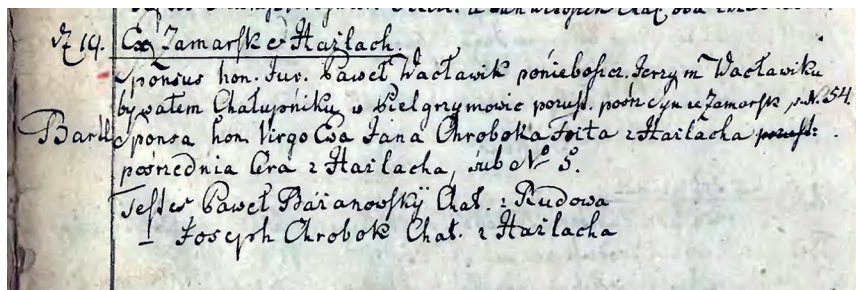 Ex Zamarsk et Hażlach.
d 19. Sponsus hon. Juv. Paweł Wacławik poniebosz. Jerzym Wacławiku
bywałem Chałupniku w Pielgrzymowic pozust. syn z Zamarsk sub N. 54.
Bartl Sponsa hon. Virgo Ewa Jana Chroboka Foita z Hażlacha
pośrzednia Cera z Hażlacha, sub No 5.
Testes Paweł Bażanowsky Chał. z Rudowa
— Joseph Chrobok Chał. z Hażlacha